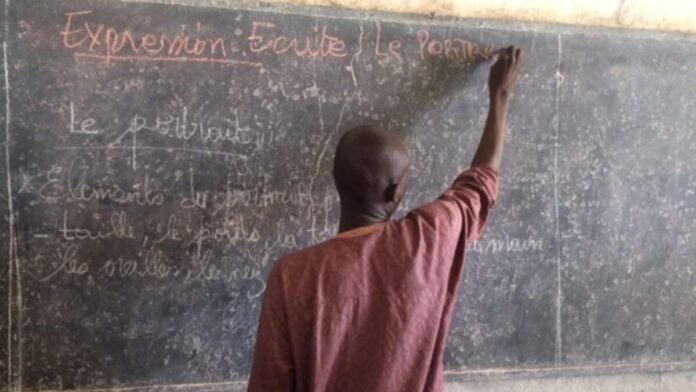 Expression Ecrite : Le PORTRA
Le portrait
Elements du portrait
- taille, le poids, la main
les oreilles, le nez